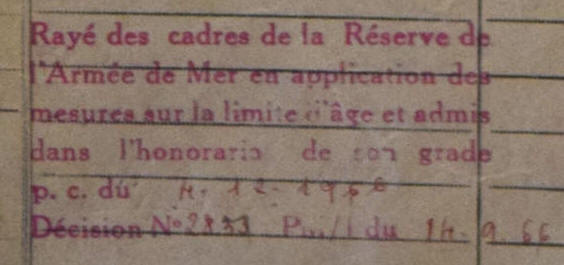 Rayé des cadres de la Réserve de
l'Armée de Mer en application des
mesures sur la limite d'âge et admis
dans l'honorariat de son grade
p. c. du 4. 12. 1966
Décision N° 2833 du 14. 9. 66